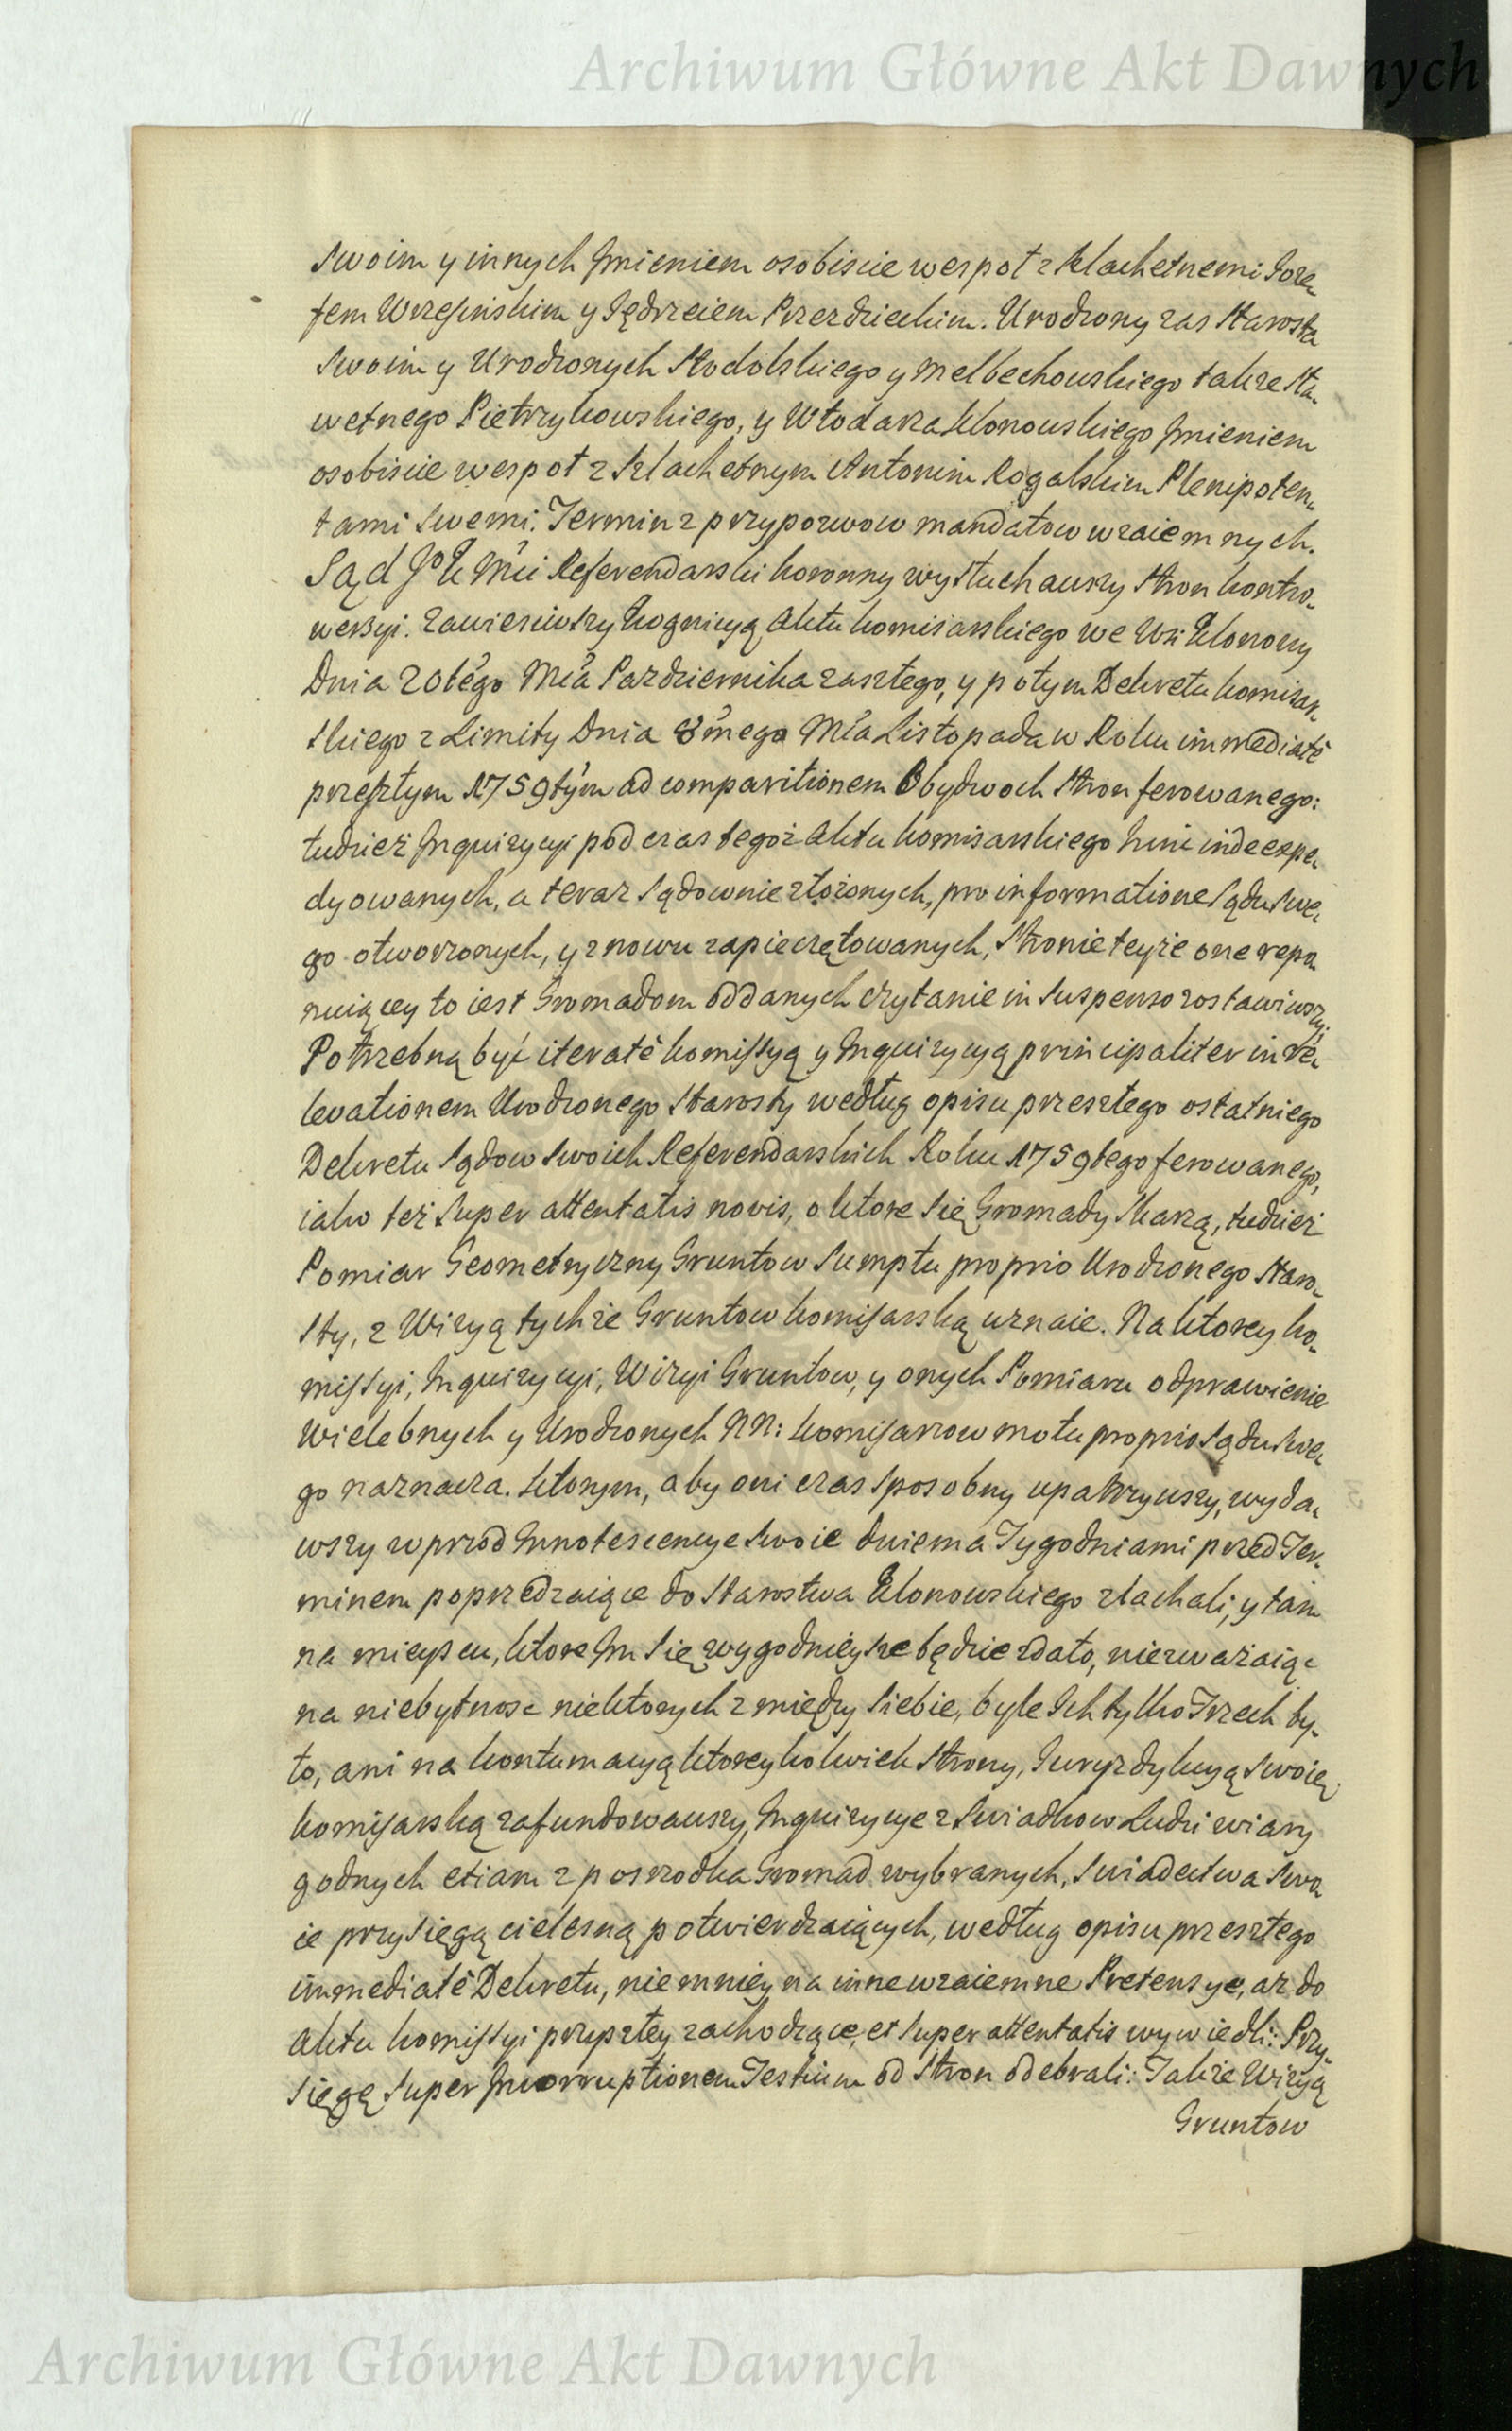 Archiwum Główne Akt Dawnych
swoim y innych Jmieniem osobiscie wespoł z Szlachetnemi Joze-
fem Wrzesinskim y Jędrzeiem Przezdzieckim. Urodzony zas Starosta
swoim y Urodzonych Stodolskiego y Melbechowskiego takze Sła-
wetnego Pietrzykowskiego, y Włodarza Klonowskiego Jmieniem
osobiscie wespoł z Szlachetnym Antonim Rogalskim Plenipoten-
tami swemi. Termin z przypozwow mandatow wzaiemnych.
Sąd JoKMci Referendarski koronny wysłuchawszy Stron kontro-
wersyi. zawiesiwszy Kognicyą Aktu komisarskiego we Wsi Klonowy
Dnia 20tego Mca Pazdziernika zaszłego, y potym Dekretu komisar-
skiego z Limity Dnia 8mego Mca Listopada w Roku immediatè
przeszłym 1759tym ad comparitionem Obydwoch Stron ferowanego:
tudzież Inquizycyi podczas tegoż Aktu komisarskiego hinc inde expe-
dyowanych, a teraz Sądownie złożonych, pro informatione Sądu swe-
go otworzonych, y znowu zapieczętowanych, Stronie teyże one repo-
nuiącey to iest Gromadom oddanych czytanie in suspenso zostawiwszy;
Potrzebną być iteratè komissyą y Inquizycyą principaliter in re-
levationem Urodzonego Starosty według opisu przeszłego ostatniego
Dekretu Sądow swoich Referendarskich Roku 1759tego ferowanego,
iako też super attentatis novis, o ktore się Gromady skarzą, tudzież
Pomiar Geometryczny Gruntow sumptu proprio Urodzonego Staro-
sty, z Wizyą tychże Gruntow komisarską uznaie. Na ktorey ko-
missyi, Inquizycyi, Wizyi Gruntow, y onych Pomiaru odprawienie
Wielebnych y Urodzonych NN: komisarzow motu proprio Sądu swe-
go naznacza. Ktorym, aby oni czas sposobny upatrzywszy, wyda-
wszy wprzod Innotescencye swoie dwiema Tygodniami przed Ter-
minem poprzedzaiące do Starostwa Klonowskiego ziachali, y tam
na mieyscu, ktore Im się wygodnieysze będzie zdało, niezważaiąc
na niebytnosc niektorych z między siebie, byle Ich tylko Trzech by-
ło, ani na kontumacyą ktoreykolwiek Strony, Juryzdykcyą swoię
komisarską zafundowawszy, Inquizycye z Swiadkow Ludzi wiary
godnych etiam z posrzodka Gromad wybranych, swiadectwa swo-
ie przysięgą cielesną potwierdzaiących, według opisu przeszłego
immediatè Dekretu, niemniey na inne wzaiemne Pretensye, aż do
Aktu komissyi przyszłey zachodzące, et super attentatis wywiedli: Przy-
sięgę super Incorruptionem Testium od Stron odebrali: Takze Wizyą
Gruntow
Archiwum Główne Akt Dawnych